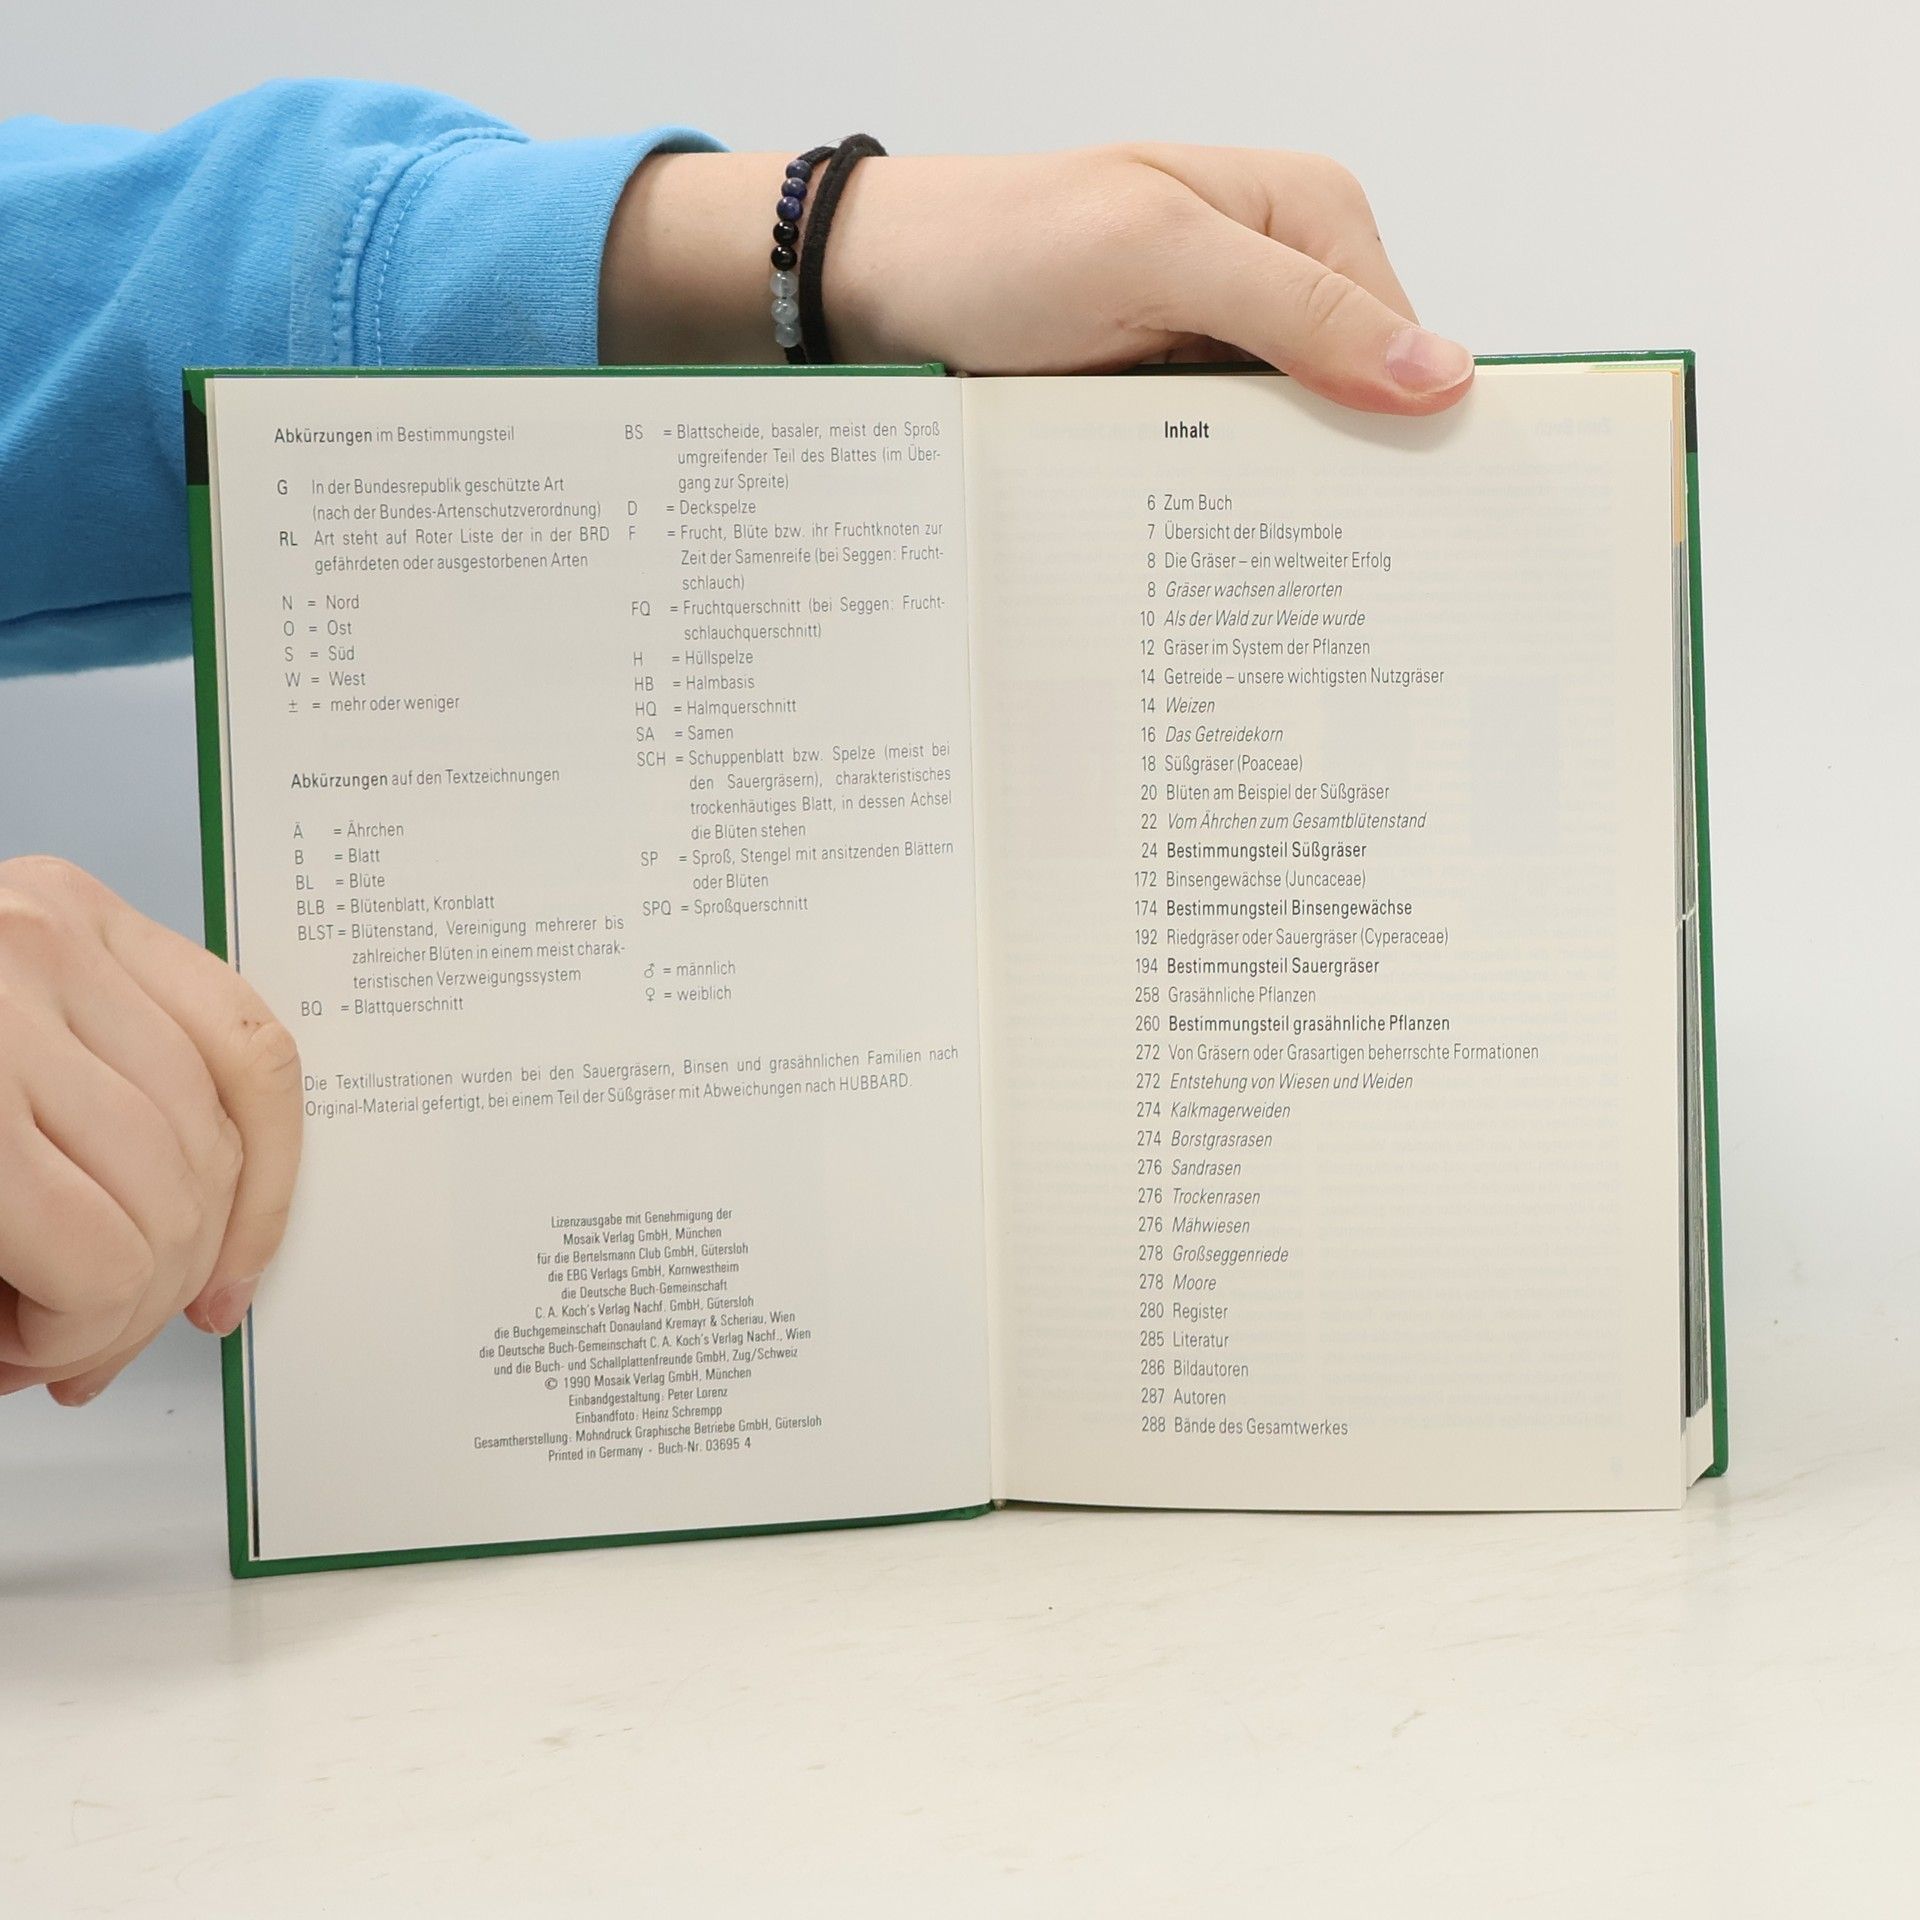 Abkürzungen im Bestimmungsteil
G In der Bundesrepublik geschützte Art
(nach der Bundes-Artenschutzverordnung)
RL Art steht auf Roter Liste der in der BRD
gefährdeten oder ausgestorbenen Arten
N = Nord
O = Ost
S = Süd
W = West
± = mehr oder weniger
Abkürzungen auf den Textzeichnungen
Ä = Ährchen
B = Blatt
BL = Blüte
BLB = Blütenblatt, Kronblatt
BLST = Blütenstand, Vereinigung mehrerer bis
zahlreicher Blüten in einem meist charak-
teristischen Verzweigungssystem
BQ = Blattquerschnitt
BS = Blattscheide, basaler, meist den Sproß
umgreifender Teil des Blattes (im Über-
gang zur Spreite)
D = Deckspelze
F = Frucht, Blüte bzw. ihr Fruchtknoten zur
Zeit der Samenreife (bei Seggen: Frucht-
schlauch)
FQ = Fruchtquerschnitt (bei Seggen: Frucht-
schlauchquerschnitt)
H = Hüllspelze
HB = Halmbasis
HQ = Halmquerschnitt
SA = Samen
SCH = Schuppenblatt bzw. Spelze (meist bei
den Sauergräsern), charakteristisches
trockenhäutiges Blatt, in dessen Achsel
die Blüten stehen
SP = Sproß, Stengel mit ansitzenden Blättern
oder Blüten
SPQ = Sproßquerschnitt
♂ = männlich
♀ = weiblich
Die Textillustrationen wurden bei den Sauergräsern, Binsen und grasähnlichen Familien nach
Original-Material gefertigt, bei einem Teil der Süßgräser mit Abweichungen nach HUBBARD.
Lizenzausgabe mit Genehmigung der
Mosaik Verlag GmbH, München
für die Bertelsmann Club GmbH, Gütersloh
die EBG Verlags GmbH, Kornwestheim
die Deutsche Buch-Gemeinschaft
C. A. Koch's Verlag Nachf. GmbH, Gütersloh
die Buchgemeinschaft Donauland Kremayr & Scheriau, Wien
die Deutsche Buch-Gemeinschaft C. A. Koch's Verlag Nachf., Wien
und die Buch- und Schallplattenfreunde GmbH, Zug/Schweiz
© 1990 Mosaik Verlag GmbH, München
Einbandgestaltung: Peter Lorenz
Einbandfoto: Heinz Schrempp
Gesamtherstellung: Mohndruck Graphische Betriebe GmbH, Gütersloh
Printed in Germany · Buch-Nr. 03695 4
Inhalt
6 Zum Buch
7 Übersicht der Bildsymbole
8 Die Gräser – ein weltweiter Erfolg
8 Gräser wachsen allerorten
10 Als der Wald zur Weide wurde
12 Gräser im System der Pflanzen
14 Getreide – unsere wichtigsten Nutzgräser
14 Weizen
16 Das Getreidekorn
18 Süßgräser (Poaceae)
20 Blüten am Beispiel der Süßgräser
22 Vom Ährchen zum Gesamtblütenstand
24 Bestimmungsteil Süßgräser
172 Binsengewächse (Juncaceae)
174 Bestimmungsteil Binsengewächse
192 Riedgräser oder Sauergräser (Cyperaceae)
194 Bestimmungsteil Sauergräser
258 Grasähnliche Pflanzen
260 Bestimmungsteil grasähnliche Pflanzen
272 Von Gräsern oder Grasartigen beherrschte Formationen
272 Entstehung von Wiesen und Weiden
274 Kalkmagerweiden
274 Borstgrasrasen
276 Sandrasen
276 Trockenrasen
276 Mähwiesen
278 Großseggenriede
278 Moore
280 Register
285 Literatur
286 Bildautoren
287 Autoren
288 Bände des Gesamtwerkes